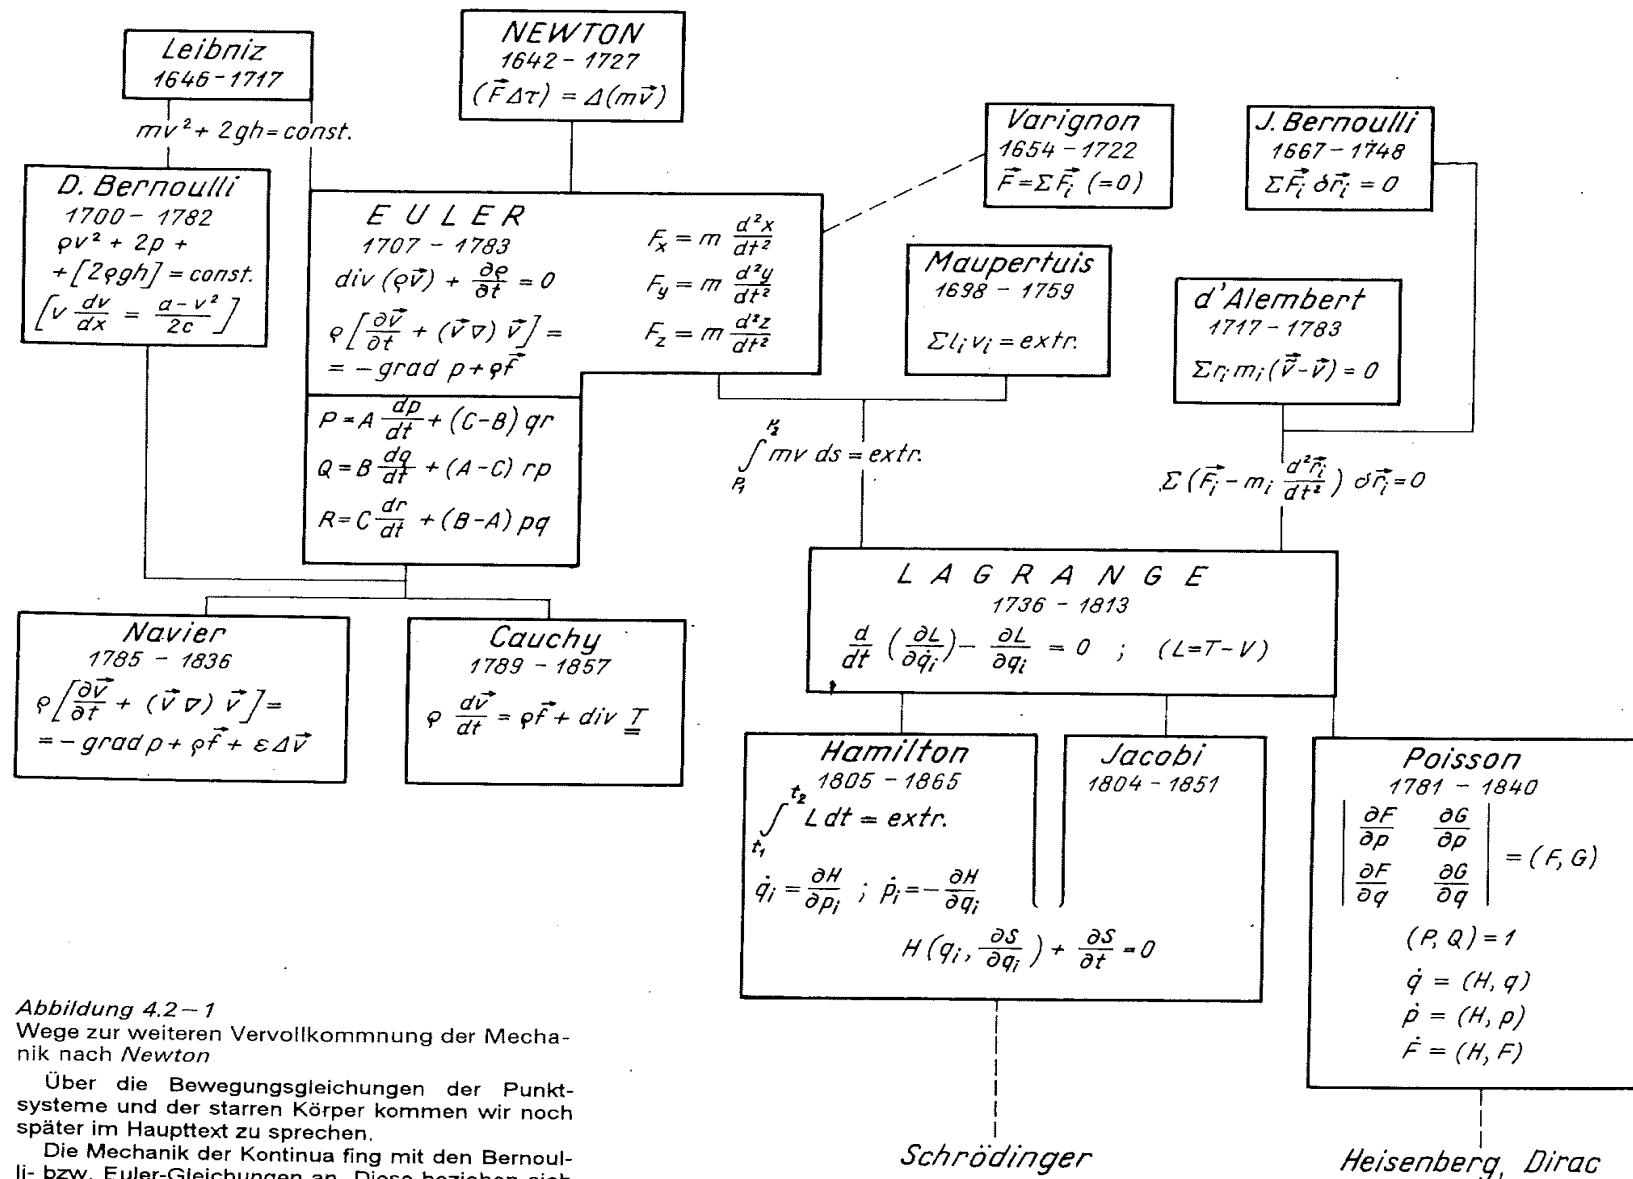 Leibniz
1646 – 1717
mv² + 2gh = const.
NEWTON
1642 – 1727
(F⃗ Δτ) = Δ(mv⃗)
Varignon
1654 – 1722
F⃗ = ΣF⃗ᵢ (=0)
J. Bernoulli
1667 – 1748
ΣF⃗ᵢ δr⃗ᵢ = 0
D. Bernoulli
1700 – 1782
ϱv² + 2p +
+ [2ϱgh] = const.
[v dv/dx = (a – v²)/2c]
EULER
1707 – 1783
div (ϱv⃗) + ∂ϱ/∂t = 0
ϱ[∂v⃗/∂t + (v⃗ ∇) v⃗] =
= – grad p + ϱf⃗
Fₓ = m d²x/dt²
F_y = m d²y/dt²
F_z = m d²z/dt²
P = A dp/dt + (C–B) qr
Q = B dq/dt + (A–C) rp
R = C dr/dt + (B–A) pq
Maupertuis
1698 – 1759
Σlᵢvᵢ = extr.
d'Alembert
1717 – 1783
Σrᵢmᵢ(ṽ⃗ – v⃗) = 0
∫_P₁^P₂ mv ds = extr.
Σ (F⃗ᵢ – mᵢ d²r⃗ᵢ/dt²) δr⃗ᵢ = 0
LAGRANGE
1736 – 1813
d/dt (∂L/∂q̇ᵢ) – ∂L/∂qᵢ = 0 ; (L=T–V)
Navier
1785 – 1836
ϱ[∂v⃗/∂t + (v⃗ ∇) v⃗] =
= – grad p + ϱf⃗ + εΔv⃗
Cauchy
1789 – 1857
ϱ dv⃗/dt = ϱf⃗ + div T
Hamilton
1805 – 1865
∫_t₁^t₂ L dt = extr.
q̇ᵢ = ∂H/∂pᵢ ; ṗᵢ = – ∂H/∂qᵢ
Jacobi
1804 – 1851
H(qᵢ, ∂S/∂qᵢ) + ∂S/∂t = 0
Poisson
1781 – 1840
| ∂F/∂p ∂G/∂p |
| ∂F/∂q ∂G/∂q | = (F, G)
(P, Q) = 1
q̇ = (H, q)
ṗ = (H, p)
Ḟ = (H, F)
Schrödinger
Heisenberg, Dirac
Abbildung 4.2 – 1
Wege zur weiteren Vervollkommnung der Mecha-
nik nach Newton
Über die Bewegungsgleichungen der Punkt-
systeme und der starren Körper kommen wir noch
später im Haupttext zu sprechen.
Die Mechanik der Kontinua fing mit den Bernoul-
li- bzw. Euler-Gleichungen an. Diese beziehen sich